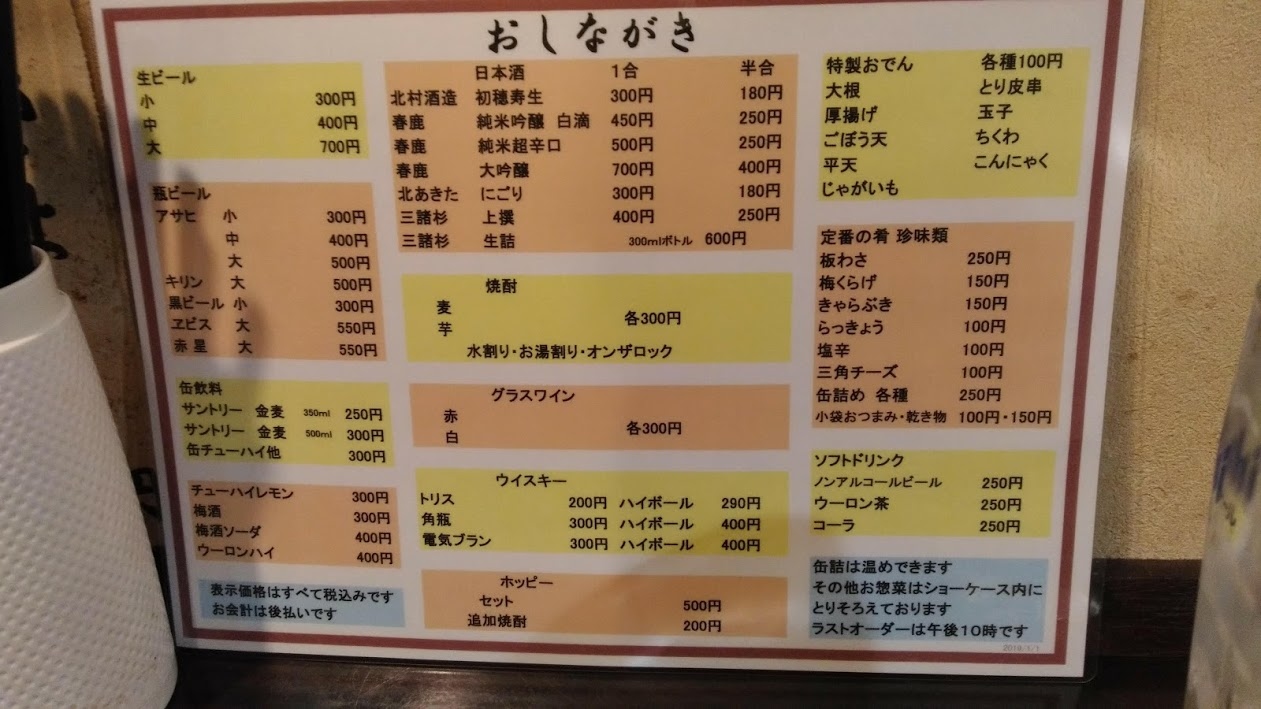 おしながき
生ビール
小 300円
中 400円
大 700円
瓶ビール
アサヒ 小 300円
中 400円
大 500円
キリン 大 500円
黒ビール 小 300円
ヱビス 大 550円
赤星 大 550円
缶飲料
サントリー 金麦 350ml 250円
サントリー 金麦 500ml 300円
缶チューハイ他 300円
チューハイレモン 300円
梅酒 300円
梅酒ソーダ 400円
ウーロンハイ 400円
表示価格はすべて税込みです
お会計は後払いです
日本酒 1合 半合
北村酒造 初穂寿生 300円 180円
春鹿 純米吟醸 白滴 450円 250円
春鹿 純米超辛口 500円 250円
春鹿 大吟醸 700円 400円
北あきた にごり 300円 180円
三諸杉 上撰 400円 250円
三諸杉 生詰 300mlボトル 600円
焼酎
麦
芋
各300円
水割り・お湯割り・オンザロック
グラスワイン
赤
白
各300円
ウイスキー
トリス 200円 ハイボール 290円
角瓶 300円 ハイボール 400円
電気ブラン 300円 ハイボール 400円
ホッピー
セット 500円
追加焼酎 200円
特製おでん 各種100円
大根 とり皮串
厚揚げ 玉子
ごぼう天 ちくわ
平天 こんにゃく
じゃがいも
定番の肴 珍味類
板わさ 250円
梅くらげ 150円
きゃらぶき 150円
らっきょう 100円
塩辛 100円
三角チーズ 100円
缶詰め 各種 250円
小袋おつまみ・乾き物 100円・150円
ソフトドリンク
ノンアルコールビール 250円
ウーロン茶 250円
コーラ 250円
缶詰は温めできます
その他お惣菜はショーケース内に
とりそろえております
ラストオーダーは午後10時です
2019/1/1